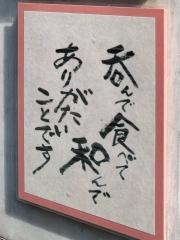 呑んで食べて
和んで
ありがたい
ことです